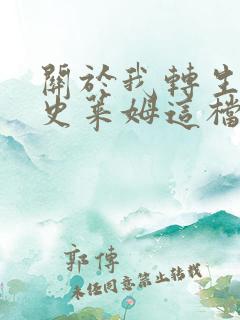 關於我轉生
史萊姆這檔
郭傳
未經同意禁止轉載